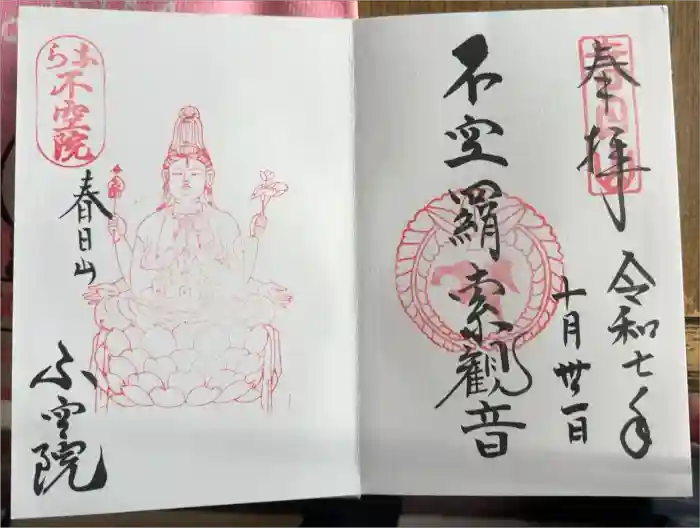 奉拝
令和七年
十月卅一日
不空羂索観音
おちら
不空院
春日山
不空院